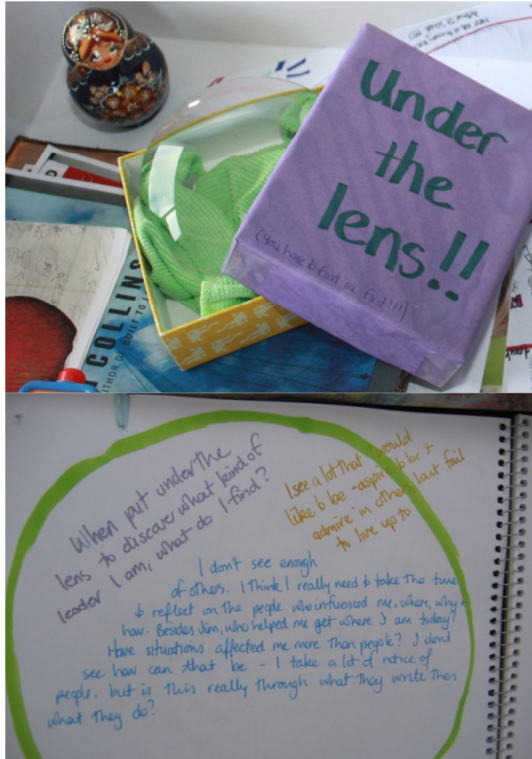 Under
the
lens!!
(You have to find me first!!!)
COLLINS
AUTHOR OF BUILT TO L
When put under the
lens to discover what kind of
leader I am, what do I find?
I see a lot that I would
like to be - aspire to be &
admire in others but fail
to live up to
I don't see enough
of others. I think I really need to take the time
to reflect on the people who influenced me, where, why &
how. Besides Jim, who helped me get where I am today?
Have situations affected me more than people? I don't
see how can that be - I take a lot of notice of
people, but is this really through what they write then
what they do?